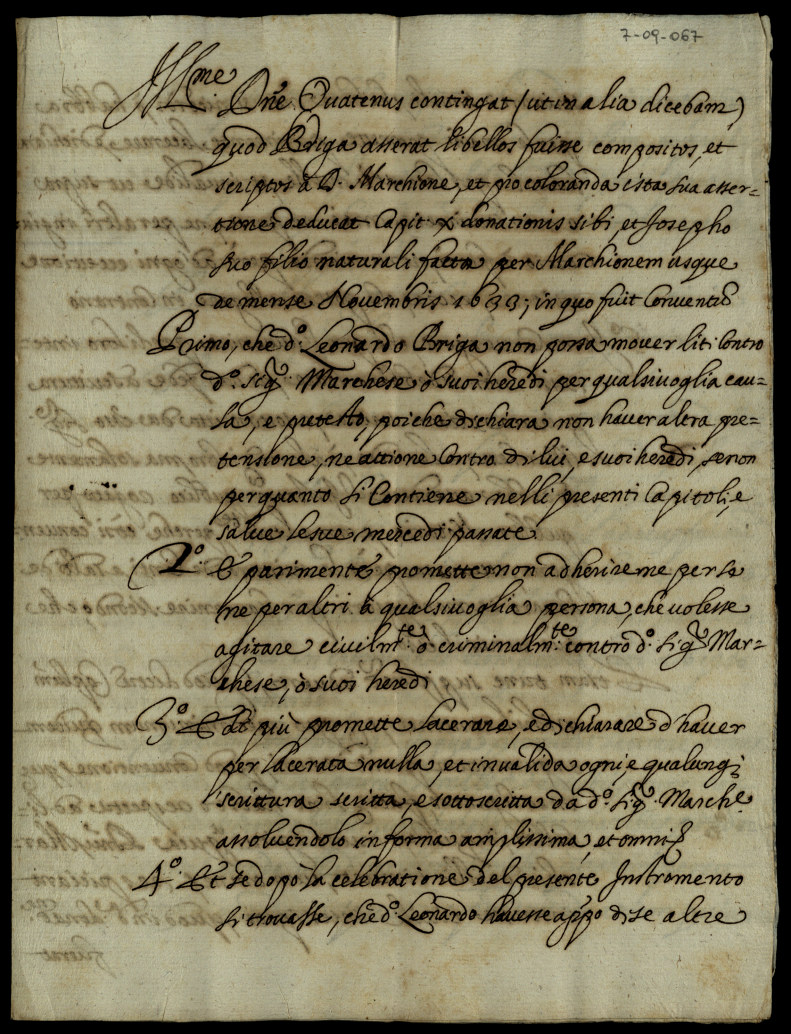 7-09-067
Ill.me
Dñe Quatenus contingat / ut in alia dicebam)
quod Briga asserat libellos fuisse compositos, et
scriptos à D. Marchione, et pro coloranda ista sua asser=
tione deducat Capit. x donationis sibi, et Josepho
suo filio naturali facta per Marchionem usque
de mense Novembris 1633; in quo fuit Conventũ
Primo, che d.º Leonardo Briga non possa mover liti contro
d.º sig.r Marchese ò suoi heredi per qualsivoglia cau=
sa, e pretesto, poiche dichiara non haver altra pre=
tensione, ne attione contro di lui, e suoi heredi, se non
per quanto si Contiene nelli presenti Capitoli, e
salve le sue mercedi passate.
2.º E parimente promette non adherire ne per se
ne per altri à qualsivoglia persona, che volesse
agitare civilm.te ò criminalm.te contro d.º Sig.r Mar=
chese, ò suoi heredi
3.º E di più promette lacerare, e dichiarare d'haver
per lacerata nulla, et invalida ogni, e qualunq;
scrittura scritta, e sottoscritta da d.º Sig.r March.e
assolvendolo in forma amplissima, et omni
4.º Et se dopò la celebratione del presente Instromento
si trovasse, che d.º Leonardo havesse appo di se altre